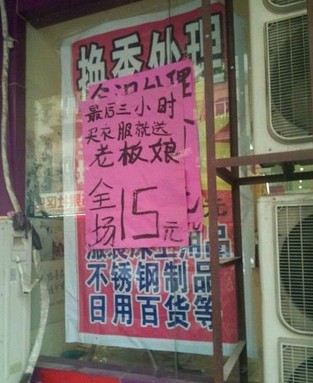 换季处理
最后三小时
买衣服就送
老板娘
全场15元
不锈钢制品
日用百货等